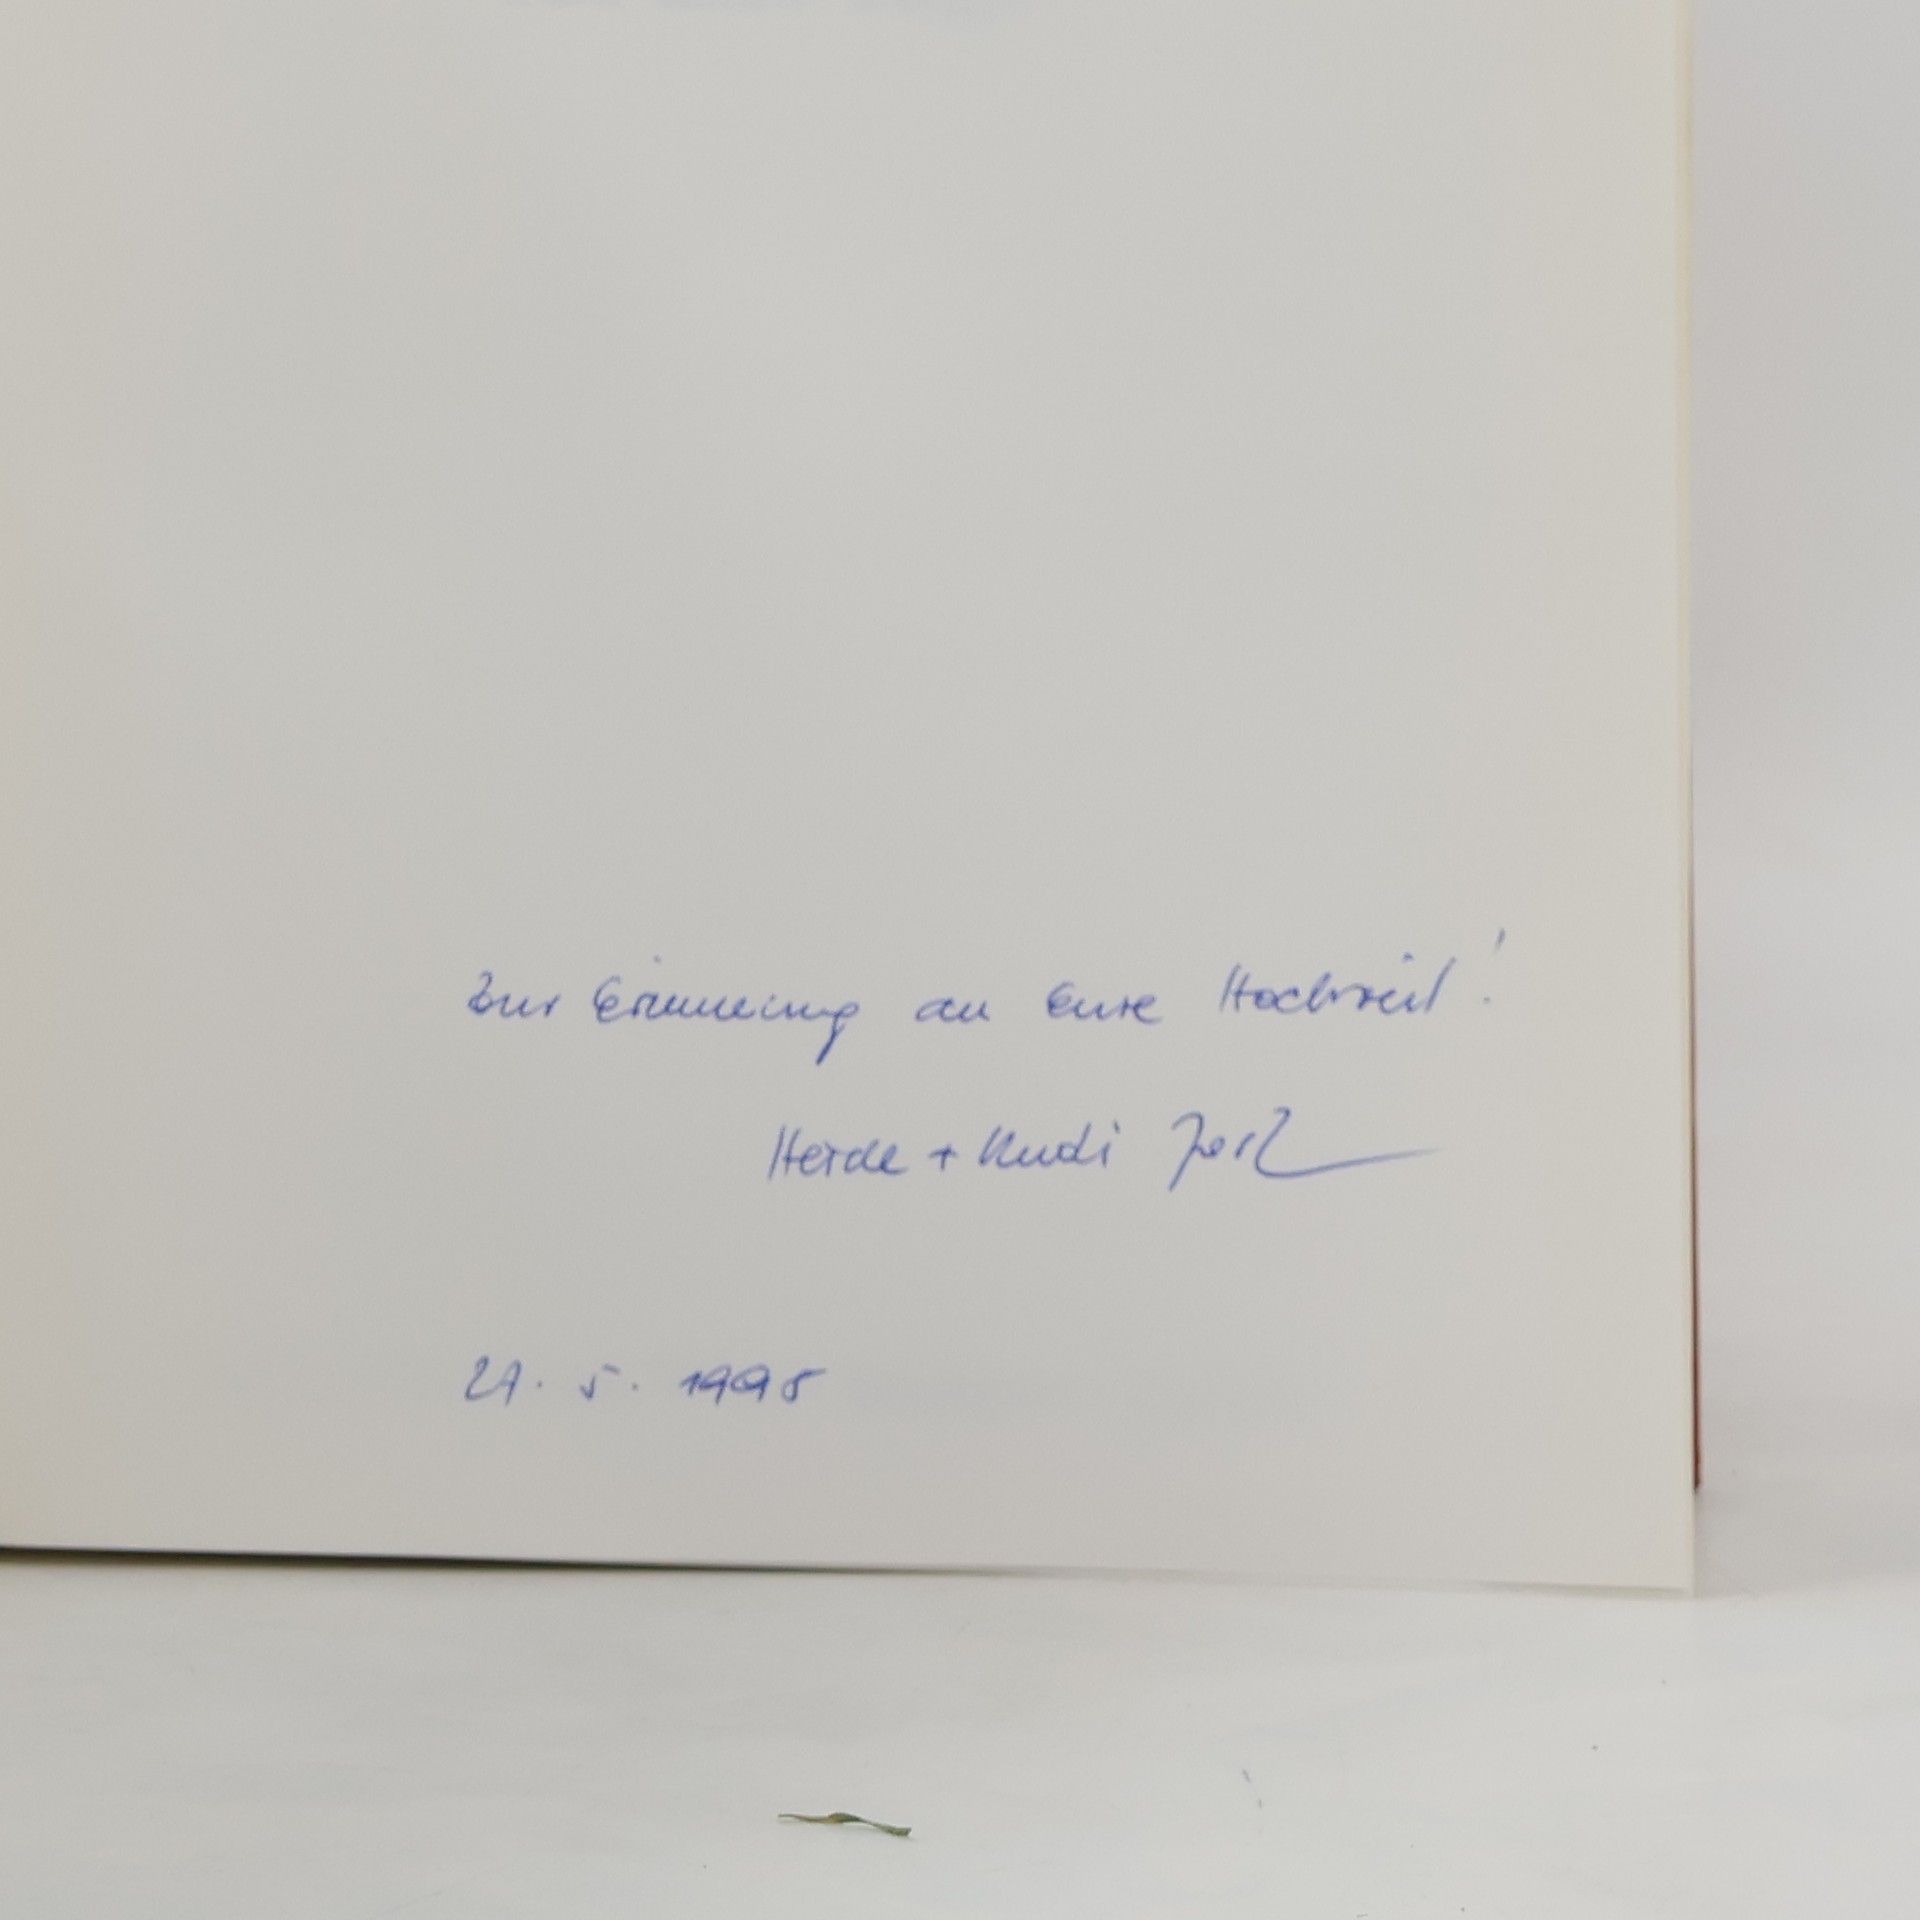 Zur Erinnerung an Eure Hochzeit!
Heide + Rudi
21. 5. 1995